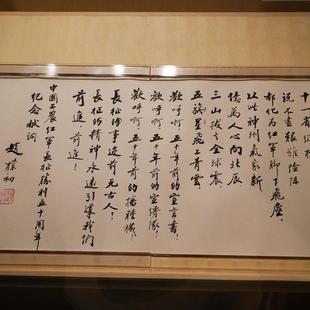 十一省
说不尽艰难险阻
都化为红军脚下飞尘
以此神州气象新
亿万人心向北辰
三山拔之全球震
五 星飞上青云
歡呼啊！五十年前的宣言書！
歡呼啊！五十年前的宣傳隊！
歡呼啊！五十年前的播種機！
长征的事迹前无古人！
长征的精神永远引導我们
前进！前进！
中国工农红军长征胜利五十周年
纪念献词
趙樸初